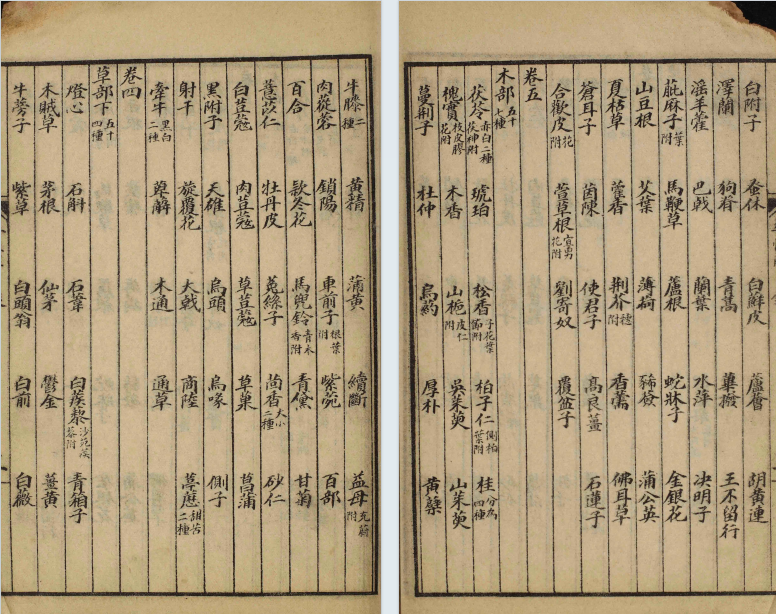 牛膝二種 黃精 蒲黃 續斷 益母充蔚附
肉蓯蓉 鎖陽 車前子根葉附 紫菀 百部
百合 款冬花 馬兜鈴青木香附 青黛 甘菊
薏苡仁 牡丹皮 菟絲子 茴香大小二種 砂仁
白荳蔻 肉荳蔻 草荳蔻 草菓 菖蒲
黑附子 天雄 烏頭 烏喙 側子
射干 旋覆花 大戟 商陸 葶藶甜苦二種
牽牛黑白二種 萆薢 木通 通草
卷四
草部下五十四種
燈心 石斛 石葦 白蒺藜沙苑蒺藜附 青箱子
木賊草 茅根 仙茅 鬱金 薑黃
牛蒡子 紫草 白頭翁 白前 白薇
白附子 蚤休 白鮮皮 蘆薈 胡黃連
澤蘭 狗脊 青蒿 蓽撥 王不留行
淫羊藿 巴戟 蘭葉 水萍 決明子
萞麻子葉附 馬鞭草 蘆根 蛇牀子 金銀花
山豆根 艾葉 薄荷 豨薟 蒲公英
夏枯草 藿香 荆芥穗附 香薷 佛耳草
蒼耳子 茵陳 使君子 高良薑 石蓮子
合歡皮花附 萱草根宜男花附 劉寄奴 覆盆子
卷五
木部五十七種
茯苓赤白二種茯神附 琥珀 松香子花葉節附 柏子仁側柏葉附 桂分為四種
槐實枝皮膠花附 木香 山梔皮仁附 吳茱萸 山茱萸
蔓荆子 杜仲 烏药 厚朴 黃蘗